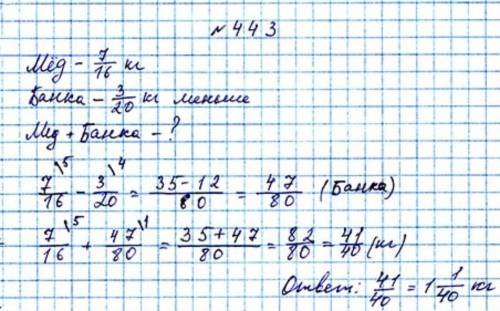 № 443
Мёд - 7/16 кг
Банка - 3/20 кг меньше
Мёд + Банка - ?
7/16 \5 - 3/20 \4 = 35-12/80 = 47/80 (Банка)
7/16 \5 + 47/80 \1 = 35+47/80 = 82/80 = 41/40 (кг)
Ответ: 41/40 = 1 1/40 кг